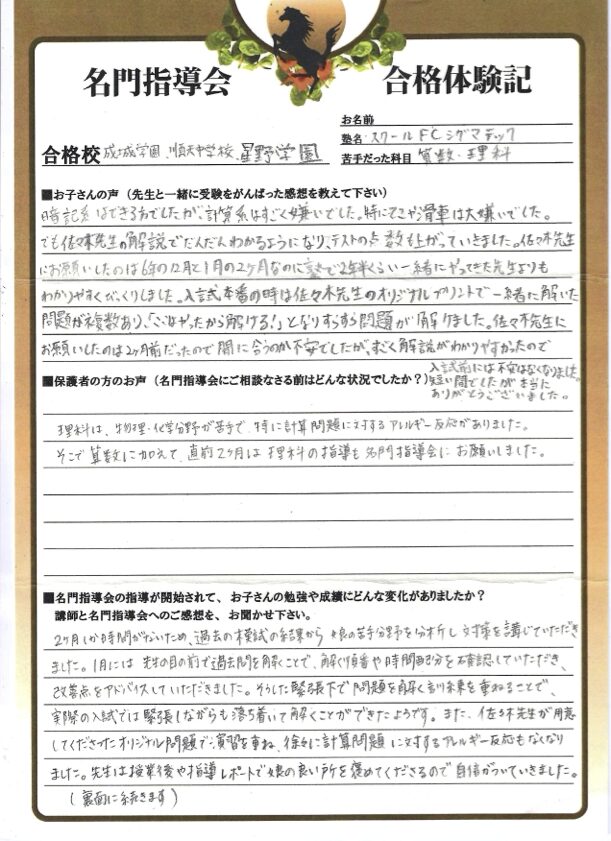 名門指導会 合格体験記
お名前
塾名 スクールFC シグマテック
合格校 成城学園、順天中学校、星野学園
苦手だった科目 算数・理科
■お子さんの声（先生と一緒に受験をがんばった感想を教えて下さい）
暗記系はできる方でしたが、計算系はすごく嫌いでした。特にてこや滑車は大嫌いでした。
でも佐々木先生の解説でだんだんわかるようになり、テストの点数も上がっていきました。佐々木先生
にお願いしたのは6年の12月と1月の2ヶ月なのに今まで2年半くらい一緒にやってきた先生よりも
わかりやすくびっくりしました。入試本番の時は佐々木先生のオリジナルプリントで一緒に解いた
問題が複数あり、「これはやったから解ける！」となりすらすら問題が解けました。佐々木先生に
お願いしたのは2ヶ月前だったので間に合うのか不安でしたが、すごく解説がわかりやすかったので
入試前には不安はなくなりました。
短い間でしたが本当に
ありがとうございました。
■保護者の方のお声（名門指導会にご相談なさる前はどんな状況でしたか？）
理科は、物理・化学分野が苦手で、特に計算問題に対するアレルギー反応がありました。
そこで算数に加えて、直前2ヶ月は理科の指導も名門指導会にお願いしました。
■名門指導会の指導が開始されて、お子さんの勉強や成績にどんな変化がありましたか？
講師と名門指導会へのご感想を、お聞かせ下さい。
2ヶ月しか時間がないため、過去の模試の結果から娘の苦手分野を分析し対策を講じていただき
ました。1月には先生の目の前で過去問を解くことで、解く順番や時間配分を確認していただき、
改善点をアドバイスしていただきました。そうした緊張下で問題を解く訓練を重ねることで、
実際の入試では緊張しながらも落ち着いて解くことができたようです。また、佐々木先生が用意
してくださったオリジナル問題で演習を重ね、徐々に計算問題に対するアレルギー反応もなくなり
ました。先生は授業後や指導レポートで娘の良い所を褒めてくださるので自信がついていきました。
（裏面に続きます）